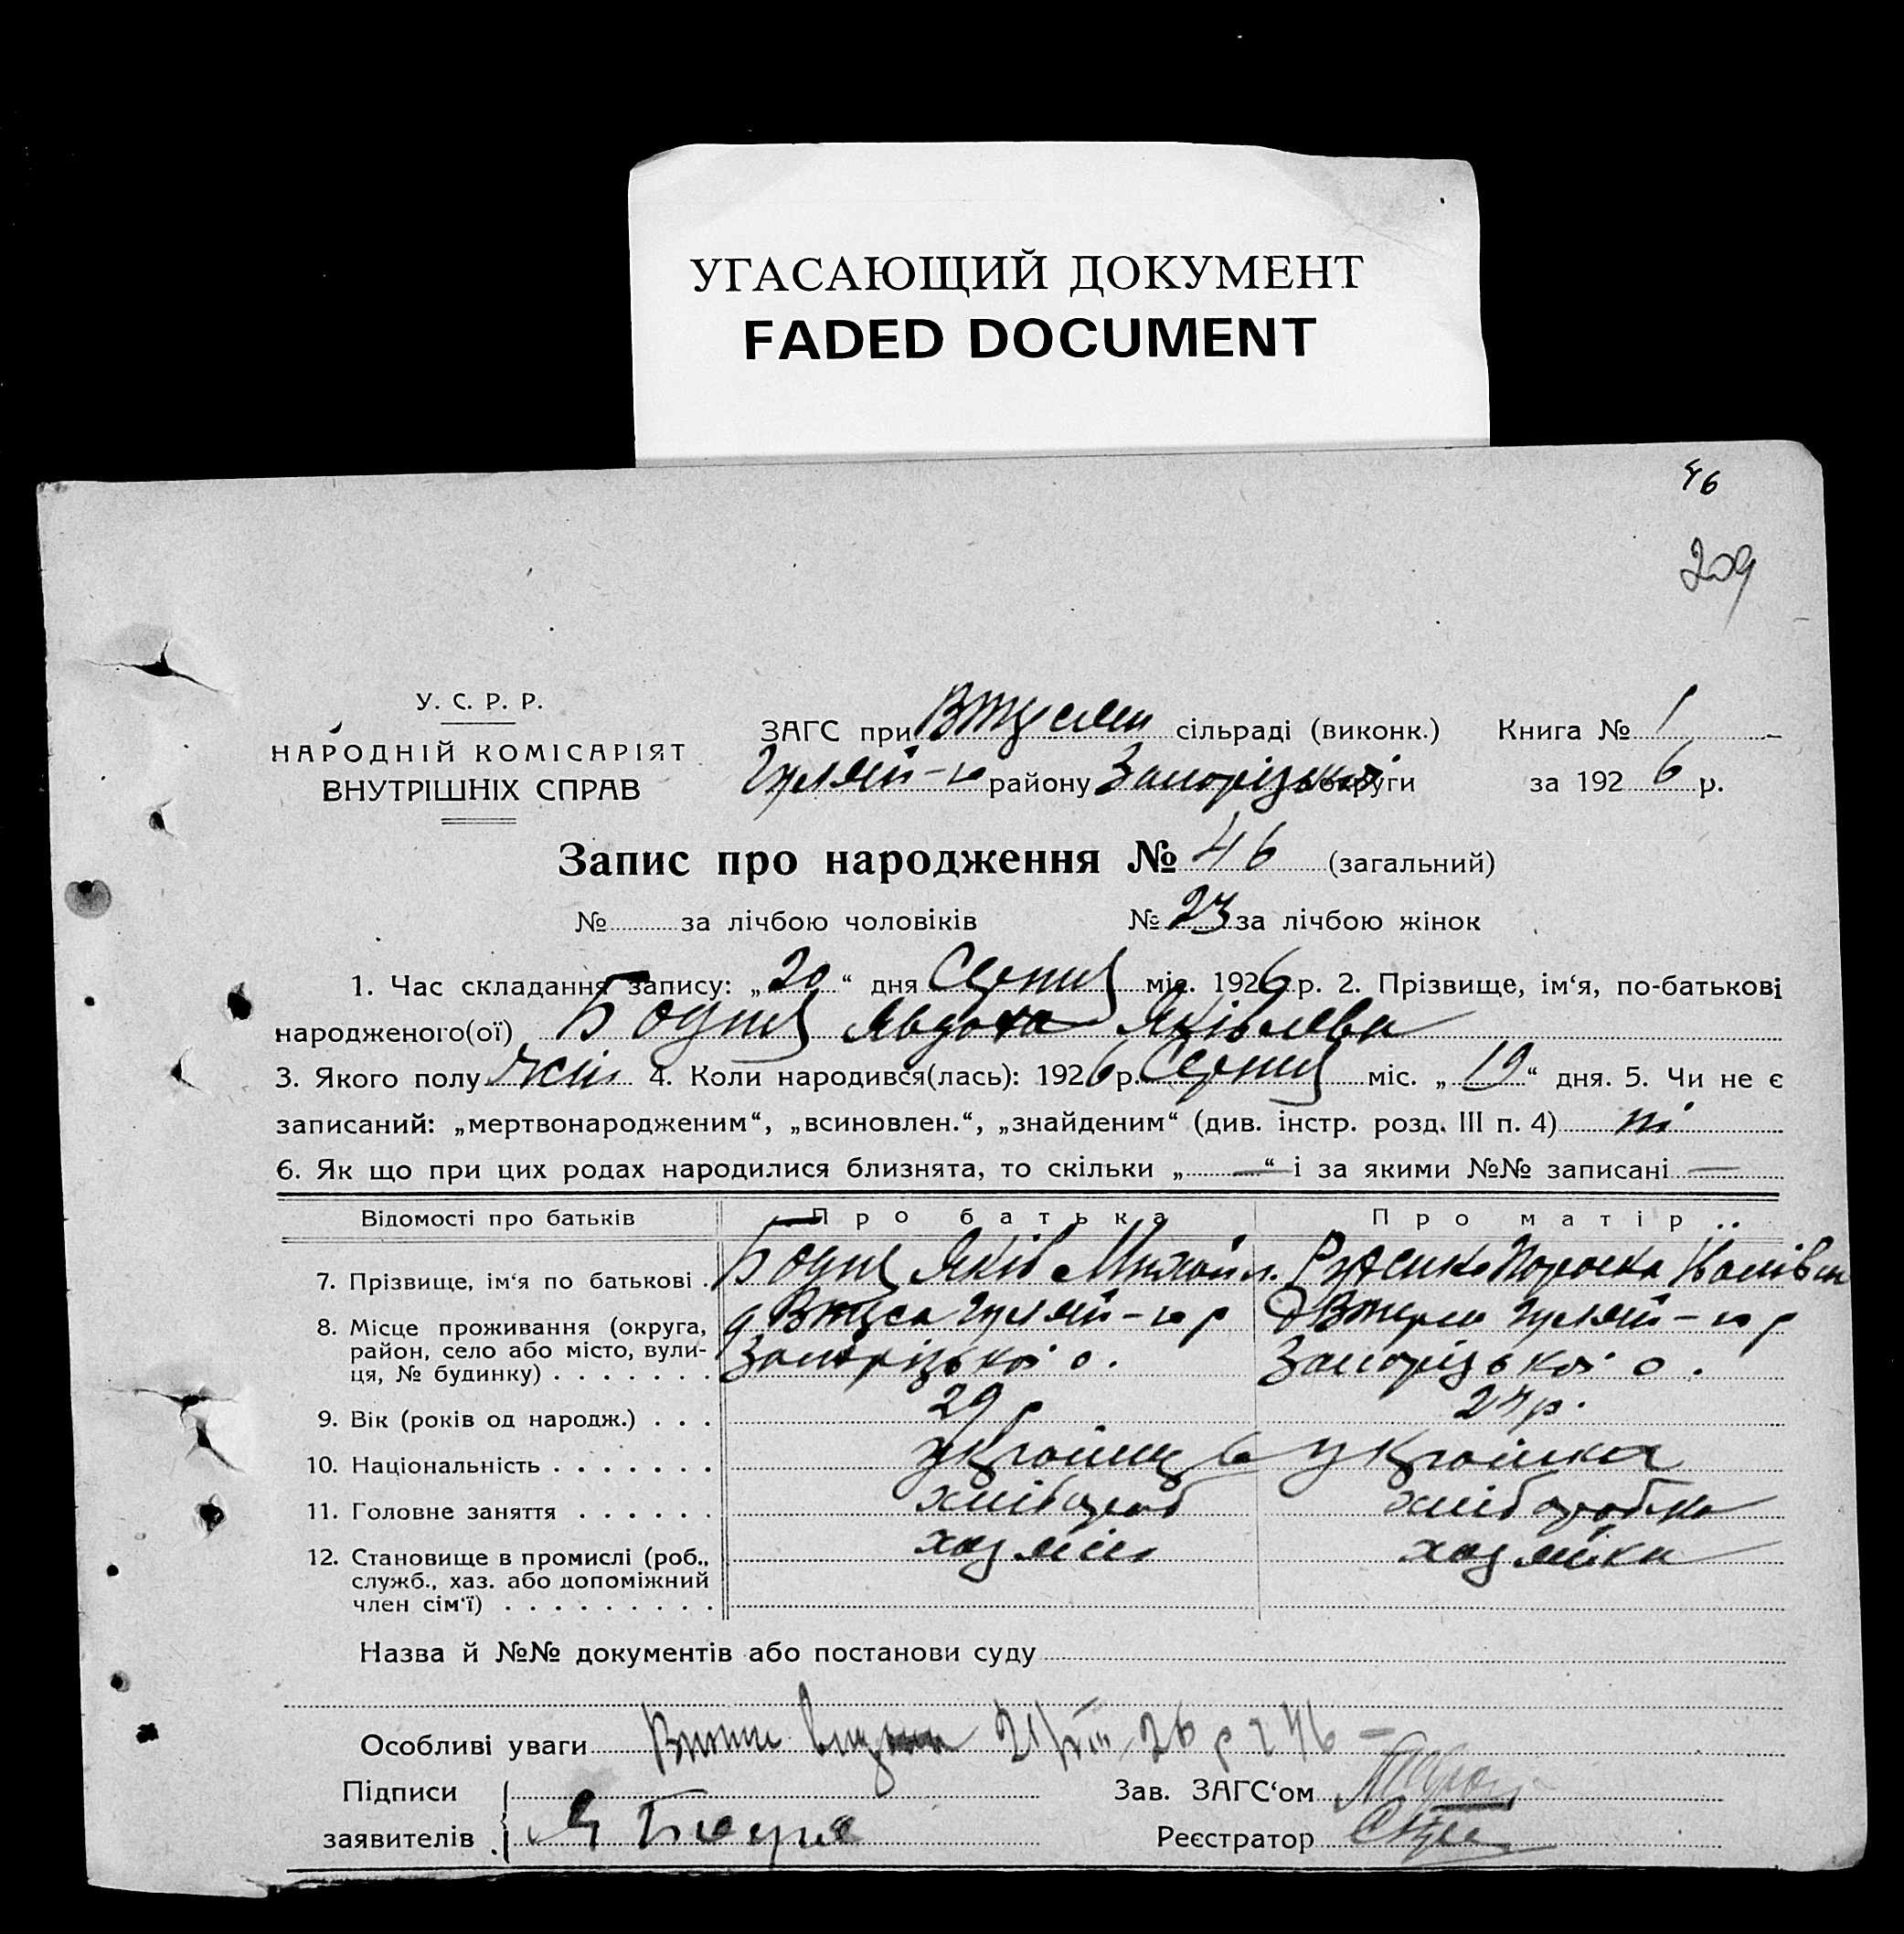 УГАСАЮЩИЙ ДОКУМЕНТ
FADED DOCUMENT
46
209
У. С. Р. Р.
НАРОДНІЙ КОМІСАРІЯТ
ВНУТРІШНІХ СПРАВ
ЗАГС при сільраді (виконк.) Книга № 1
Гуляй-го району Запорізької округи за 1926 р.
Запис про народження № 46 (загальний)
№ за лічбою чоловіків № 23 за лічбою жінок
1. Час складання запису: „20“ дня Серпня міс. 1926 р. 2. Прізвище, ім‘я, по-батькові
народженого(ої) Бодня Явдоха Яківлева
3. Якого полу жін 4. Коли народився(лась): 1926 р. Серпня міс. „19“ дня. 5. Чи не є
записаний: „мертвонародженим“, „всиновлен.“, „знайденим“ (див. інстр. розд. III п. 4) ні
6. Як що при цих родах народилися близнята, то скільки „—“ і за якими №№ записані —
Відомості про батьків Про батька Про матір
7. Прізвище, ім‘я по батькові . Бодня Яків Михайл.
8. Місце проживання (округа, район, село або місто, вулиця, № будинку) . . . . . . . Гуляй-го р Запорізької о. Гуляй-го р Запорізької о.
9. Вік (років од народж.) . . . 29 р 27 р.
10. Національність . . . . . . . українець українка
11. Головне заняття . . . . . . хлібороб хліборобка
12. Становище в промислі (роб., служб., хаз. або допоміжний член сім‘ї) . . . . . . . . . хазяїн хазяйка
Назва й №№ документів або постанови суду
Особливі уваги 26 р 46 —
Підписи Зав. ЗАГС‘ом
заявителів Я Бодня Реєстратор